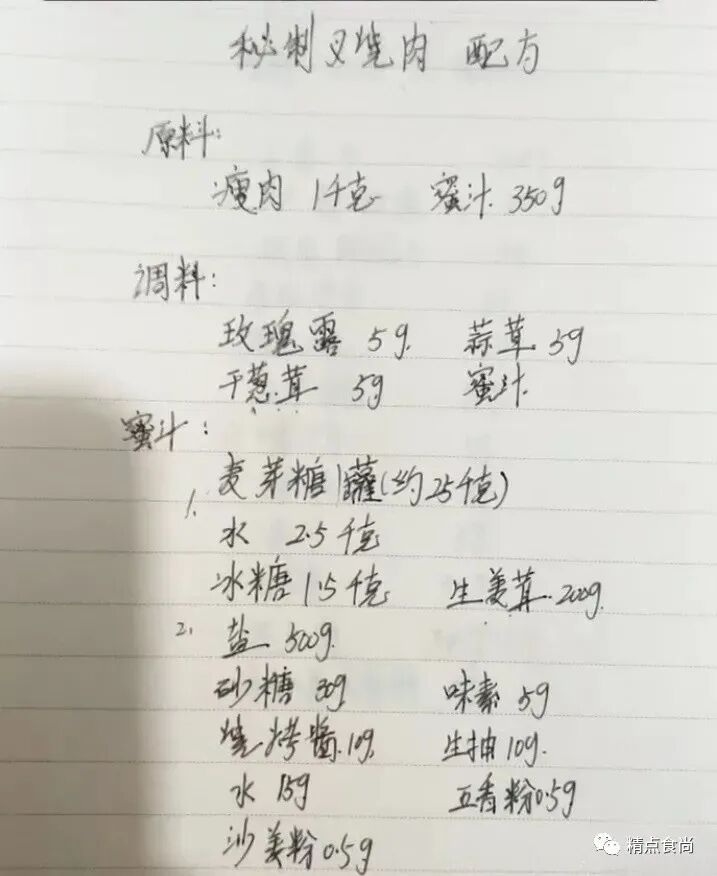 秘制叉烧肉 配方
原料:
瘦肉 1千克 蜜汁 350g
调料:
玫瑰露 5g. 蒜茸 5g
干葱茸 5g 蜜汁.
蜜汁:
1. 麦芽糖1罐(约25千克)
水 2.5千克
冰糖 1.5千克 生姜茸.200g.
2. 盐 500g.
砂糖 30g 味素 5g
烧烤酱.10g. 生抽10g.
水 15g 五香粉0.5g
沙姜粉0.5g
精点食尚